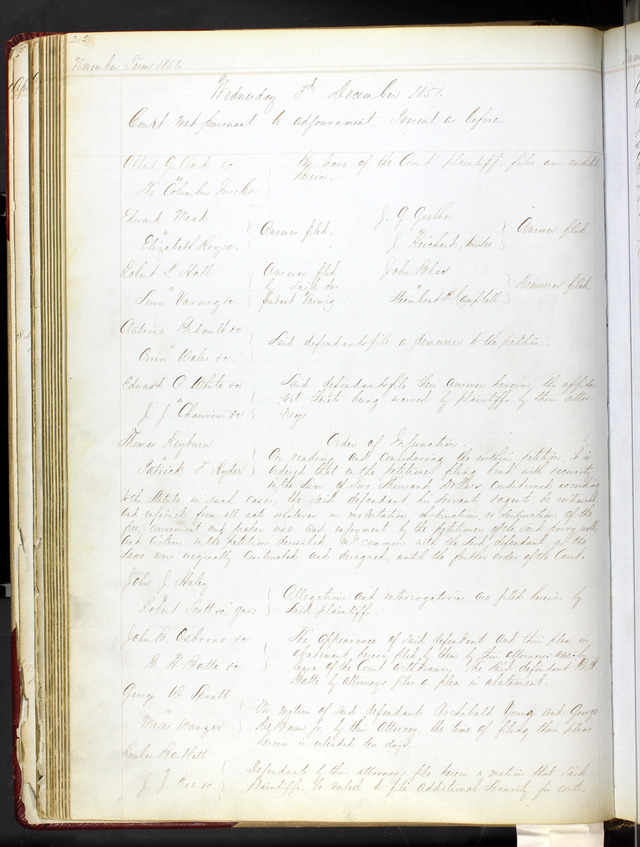 212
November Term 1851.
Wednesday 3d December 1851.
Court met pursuant to adjournment Present as before.
Albert G. &c By leave of the Court plaintiff files an
The Columbus herein.
Edward Mead
Elizabeth Answer filed.
J. G.
J. Reichard, Answer filed
Robert F. Hall
Answer filed by said de-
fendant Varwig.
John
Steamboat Demurrer filed.
Antoine &c
Wales &c Said defendants file a demurrer to the petition.
Edward O. White &c Said defendants file their answer herein, the affida-
vit thereto being waived by plaintiffs by their attor-
J. J. Chauvin &c neys
Thomas Rayburn Order of Injunction.
Patrick T. Ryder On reading and considering the within petition, it is
ordered that on the petitioner filing bond with security
in the sum of Two Thousand Dollars conditioned according
to the Statute in such cases, the said defendant his servants & agents be restrained
and enjoined from all acts whatever in molestation obstruction or destruction of the
free, convenient and proper use and enjoyment by the petitioner of the said privy, well
and cistern in the petition described, in common with the said defendant, as the
same were originally constructed and designed, until the further order of the Court.
John J. Haley
Robert Scott &c Allegations and interrogatories are filed herein by
said plaintiff.
John R. Osborne &c The appearance of said defendants and their plea in
abatement herein filed by them by their attorneys are by
leave of the Court withdrawn. The said defendant
&c by attorneys files a plea in abatement.
George W. Thrall
On motion of said defendants Archibald Young and George
jr. by their Attorney, the time of filing their pleas
herein is extended ten days.
Reuben Bartlett
J. J. &c Defendants by their attorneys file herein a motion that said
plaintiffs be ruled to file additional security for costs.